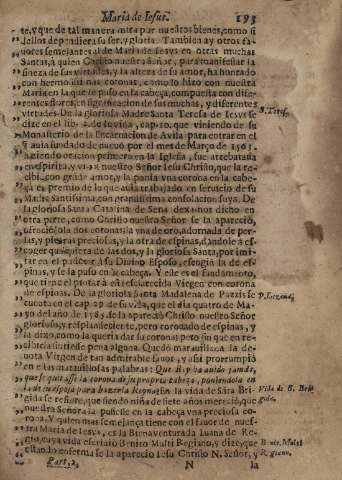 Maria de Iesus. 193
te, y que de tal manera mira por nuestros bienes, como si
dellos dependiera su ser, y gloria. Tambien ay otros fa-
uores semejantes al de Maria de Iesus en otras muchas
Santas, à quien Christo nuestro Señor, para manifestar la
fineza de sus virtudes, y la alteza de su amor, ha honrado
con hermosissimas coronas, como lo hizo con nuestra
Maria en la que le puso en la cabeça, compuesta con dife-
rentes flores, en significacion de sus muchas, y diferentes
virtudes. De la gloriosa Madre Santa Teresa de Iesus se
S. Teres.
dize en el lib. de su vida, cap. 10. que viniendo de su
Monasterio de la Encarnacion de Avila para entrar en el
q̃ auia fundado de nueuo por el mes de Março de 1563.
haziendo oracion primero en la Iglesia, fue arrebatada
en espiritu, y viò a nuestro Señor Iesu Christo, que la re-
cibi con grãde amor, y la ponia vna corona en la cabe-
ça en premio de lo que auia trabajado en seruicio de su
Madre Santissima, con grandissima consolacion suya. De
la gloriosa Santa Catalina de Sena dexamos dicho en
otra parte, como Christo nuestro Señor se la apareciò,
ofreciẽdola dos coronas: la vna de oro, adornada de per-
las, y piedras preciosas, y la otra de espinas, dandole à es-
coger qual quisiera de las dos, y la gloriosa Santa, por imi-
tar en el padecer à su Divino Esposo, escogiò la de es-
pinas, y se la puso en la cabeça. Y este es el fundamento,
que tiene el pintar à esta esclarecida Virgen con corona
de espinas. De la gloriosa Santa Madalena de Pazzis se
cuenta en el cap. de su vida, que el dia quatro de Ma-
yo del año de 1585. se la apareciò Christo nuestro Señor
glorioso, y resplandeciente, pero coronado de espinas, y
la dixo, como la queria dar su corona; pero sin que en re-
cibirla sintiesse pena alguna. Quedò marauillada la de-
uota Virgen de tan admirable fauor, y assi prorrumpiò
en estas marauillosas palabras:
que le quitasse la corona de su propria cabeça, poniendola en
En la vida de Santa Bri-
Vida de S. Bri-
gida se refiere, que siendo niña de siete años mereciò, que
gida.
nuestra Señora la pusiesse en la cabeça vna preciosa co-
rona. Y quien mas semejança tiene con el fauor de nues-
tra Maria de Iesus, es la Bienaventurada Iuana de Re-
gio, cuya vida escriuiò Benito Multi Regiano, y dize, que
Benit. Mulet
estando enferma se la apareciò Iesu Christo N. Señor, y
Regiano.
Part. 2. N la